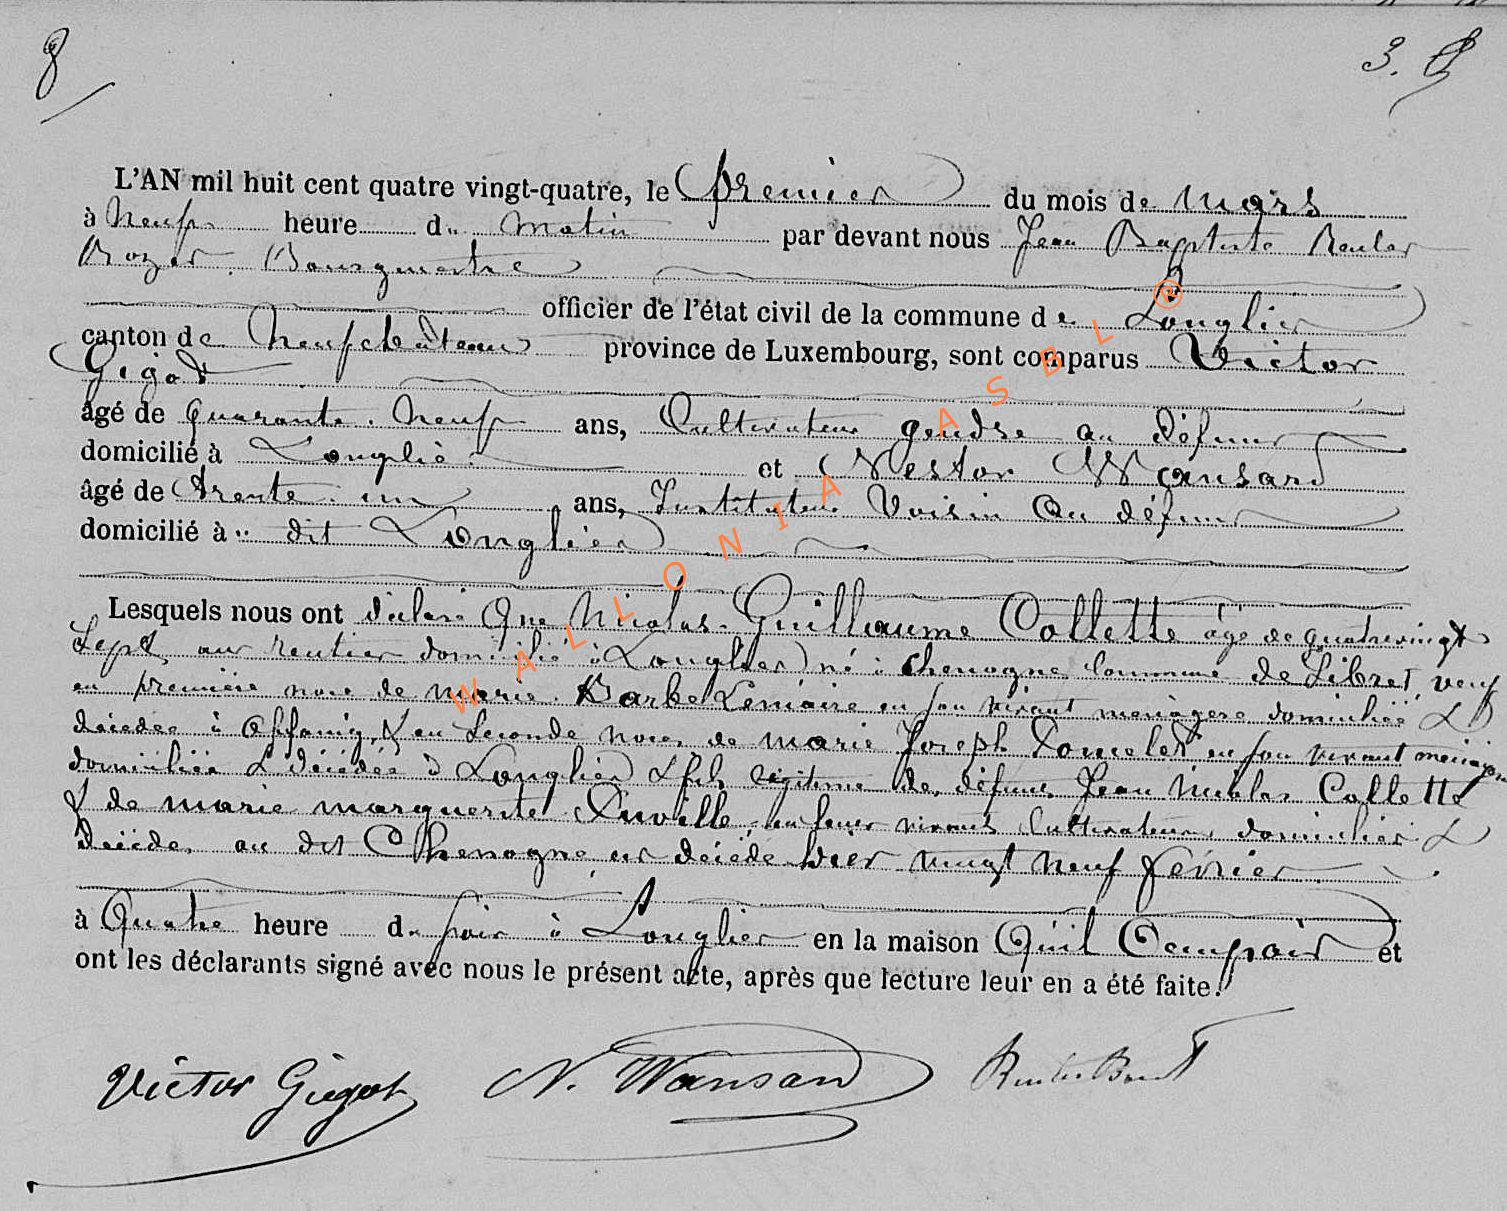 8
3.
L'AN mil huit cent quatre vingt-quatre, le premier du mois de mars
à neuf heure du matin par devant nous Jean Baptiste Reuler
Bourgmestre
officier de l'état civil de la commune de Longlier
canton de Neufchâteau province de Luxembourg, sont comparus Victor
Gigot
âgé de quarante-neuf ans, Cultivateur gendre au défunt
domicilié à Longlier et Nestor Wansard
âgé de trente-un ans, Instituteur Voisin au défunt
domicilié à dit Longlier
Lesquels nous ont déclaré que Nicolas-Guillaume Collette âgé de quatrevingt
sept ans rentier domicilié à Longlier né à Chenogne Commune de Sibret, veuf
en première noce de marie Barbe Lemaire en son vivant ménagère domiciliée &
décédée à & en seconde noces de marie Joseph en son vivant ménagère
domiciliée & décédée à Longlier & fils légitime de défunts Jean Nicolas Collette
& de marie marguerite en leur vivant Cultivateurs domiciliés &
décédés au dit Chenogne, est décédé hier vingt neuf février
à Quatre heure du soir à Longlier en la maison Qu'il Occupait et
ont les déclarants signé avec nous le présent acte, après que lecture leur en a été faite.
Victor Gigot N. Wansard
WALLONIA ASBL ®